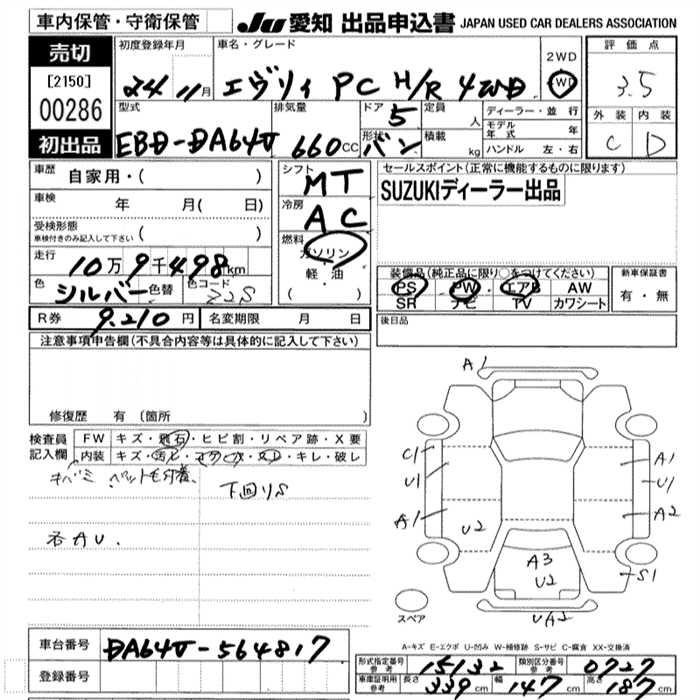 車内保管・守衛保管
JU 愛知 出品申込書 JAPAN USED CAR DEALERS ASSOCIATION
売切
[2150]
00286
初出品
初度登録年月
24年11月
車名・グレード
エヴリィ PC H/R 4WD
2WD
4WD
評価点
3.5
外装 内装
C D
型式
EBD-DA64V
排気量
660cc
ドア 5
形状 バン
定員 人
積載 kg
ディーラー・並行
モデル年式 年
ハンドル 左・右
車歴 自家用・( )
車検 年 月( 日)
受検形態
車検付きのみ記入して下さい ( )
走行 10万9千498km
色 シルバー 色替 色コード Z2S
シフト MT
冷房 AC
燃料
ガソリン
軽・油
( )
セールスポイント(正常に機能するものに限ります)
SUZUKIディーラー出品
装備品(純正品に限り○をつけてください)
PS PW エアB AW
SR ナビ TV カワシート
新車保証書
有・無
R券 9,210円 名変期限 月 日
後日品
注意事項申告欄(不具合内容等は具体的に記入して下さい)
修復歴 有(箇所 )
検査員記入欄
FW キズ・飛石・ヒビ割・リペア跡・X要
内装 キズ・汚レ・コゲ穴・スレ・キレ・破レ
ペット毛付着
下回りS
AU.
A1
C1
U1
A1
U2
A3
U2
A1
U1
A2
S1
UA2
スペア
A-キズ E-エクボ U-凹み W-補修跡 S-サビ C-腐食 XX-交換済
車台番号 DA64V-564817
登録番号
形式指定番号 参考 15132 類別区分番号 参考 0727
車庫証明用 参考 長さ 339cm 幅 147cm 高さ 187cm